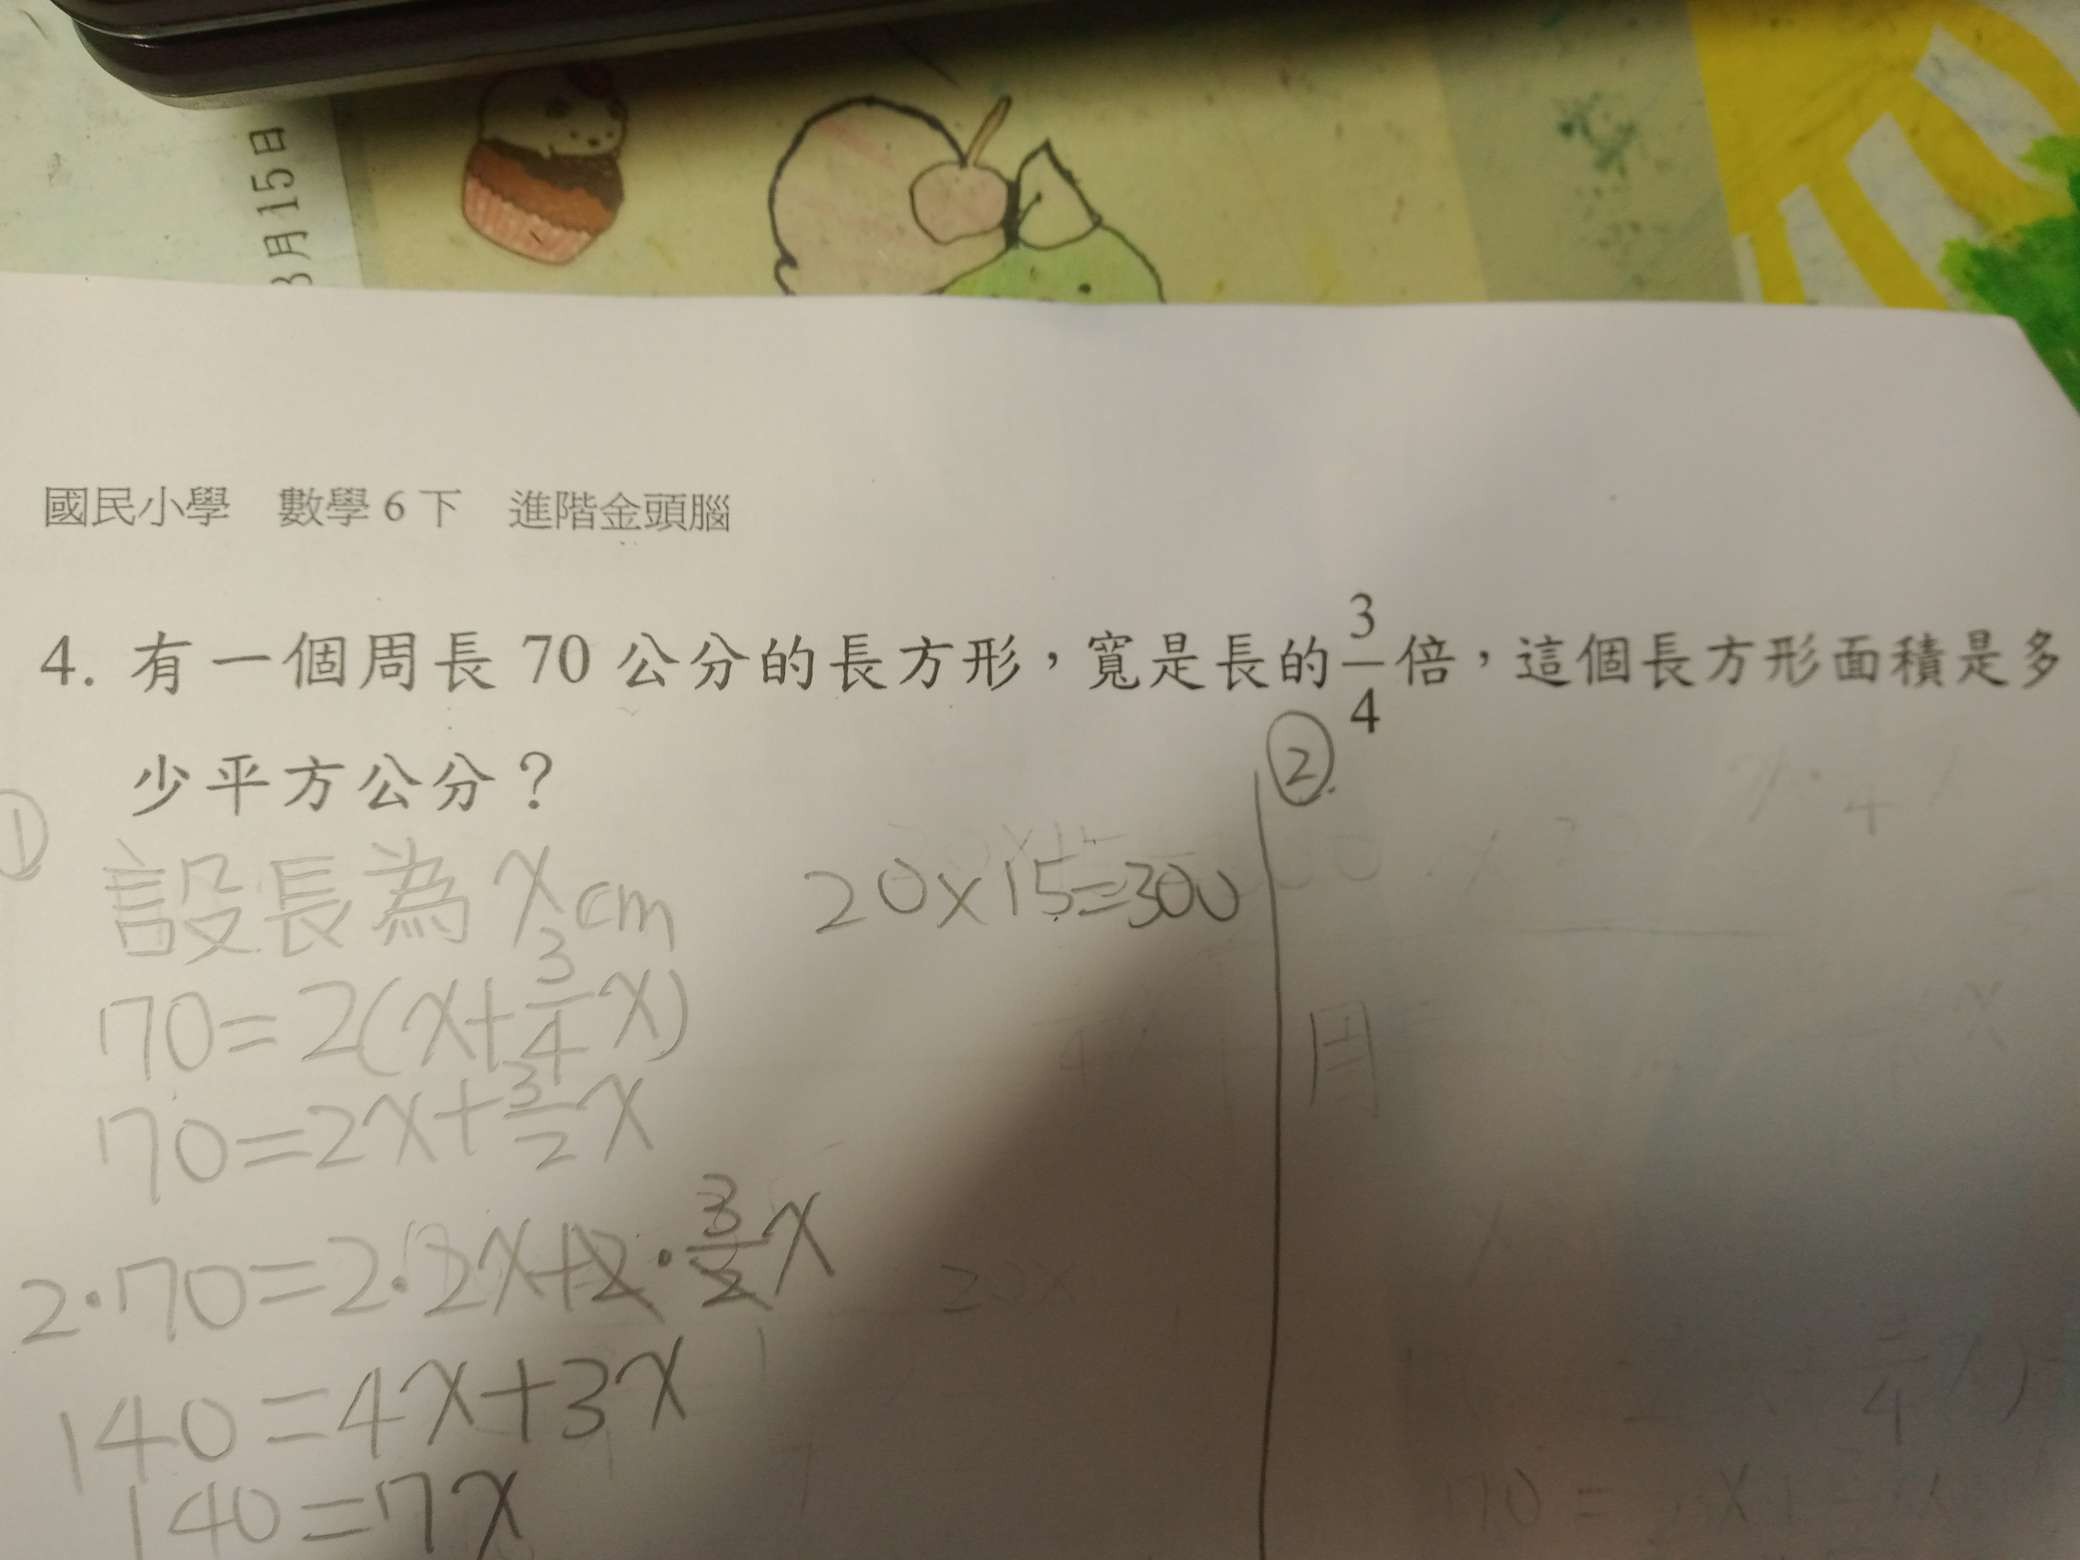 3月15日
國民小學 數學6下 進階金頭腦
4. 有一個周長70公分的長方形，寬是長的3/4倍，這個長方形面積是多
少平方公分？
①
設長為xcm
70=2(x+3/4x)
70=2x+3/2x
2·70=2·2x+2·3/2x
140=4x+3x
140=7x
20×15=300
②.
周